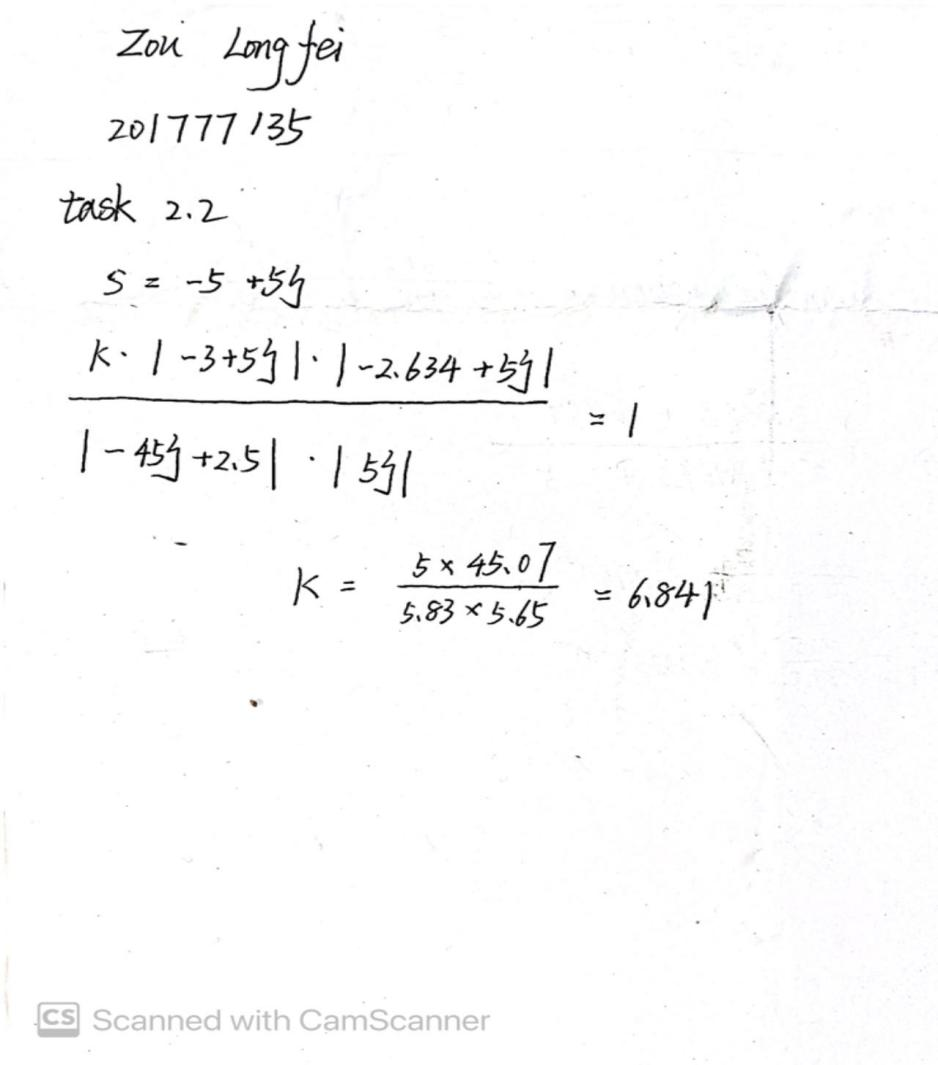 Zou Longfei
201777135
task 2.2
S = -5 +5j
K · | -3+5j | · | -2.634 +5j |
= 1
| - 45j +2.5 | · | 5j |
K = 5 × 45.07 / 5.83 × 5.65 = 6.841
CS Scanned with CamScanner